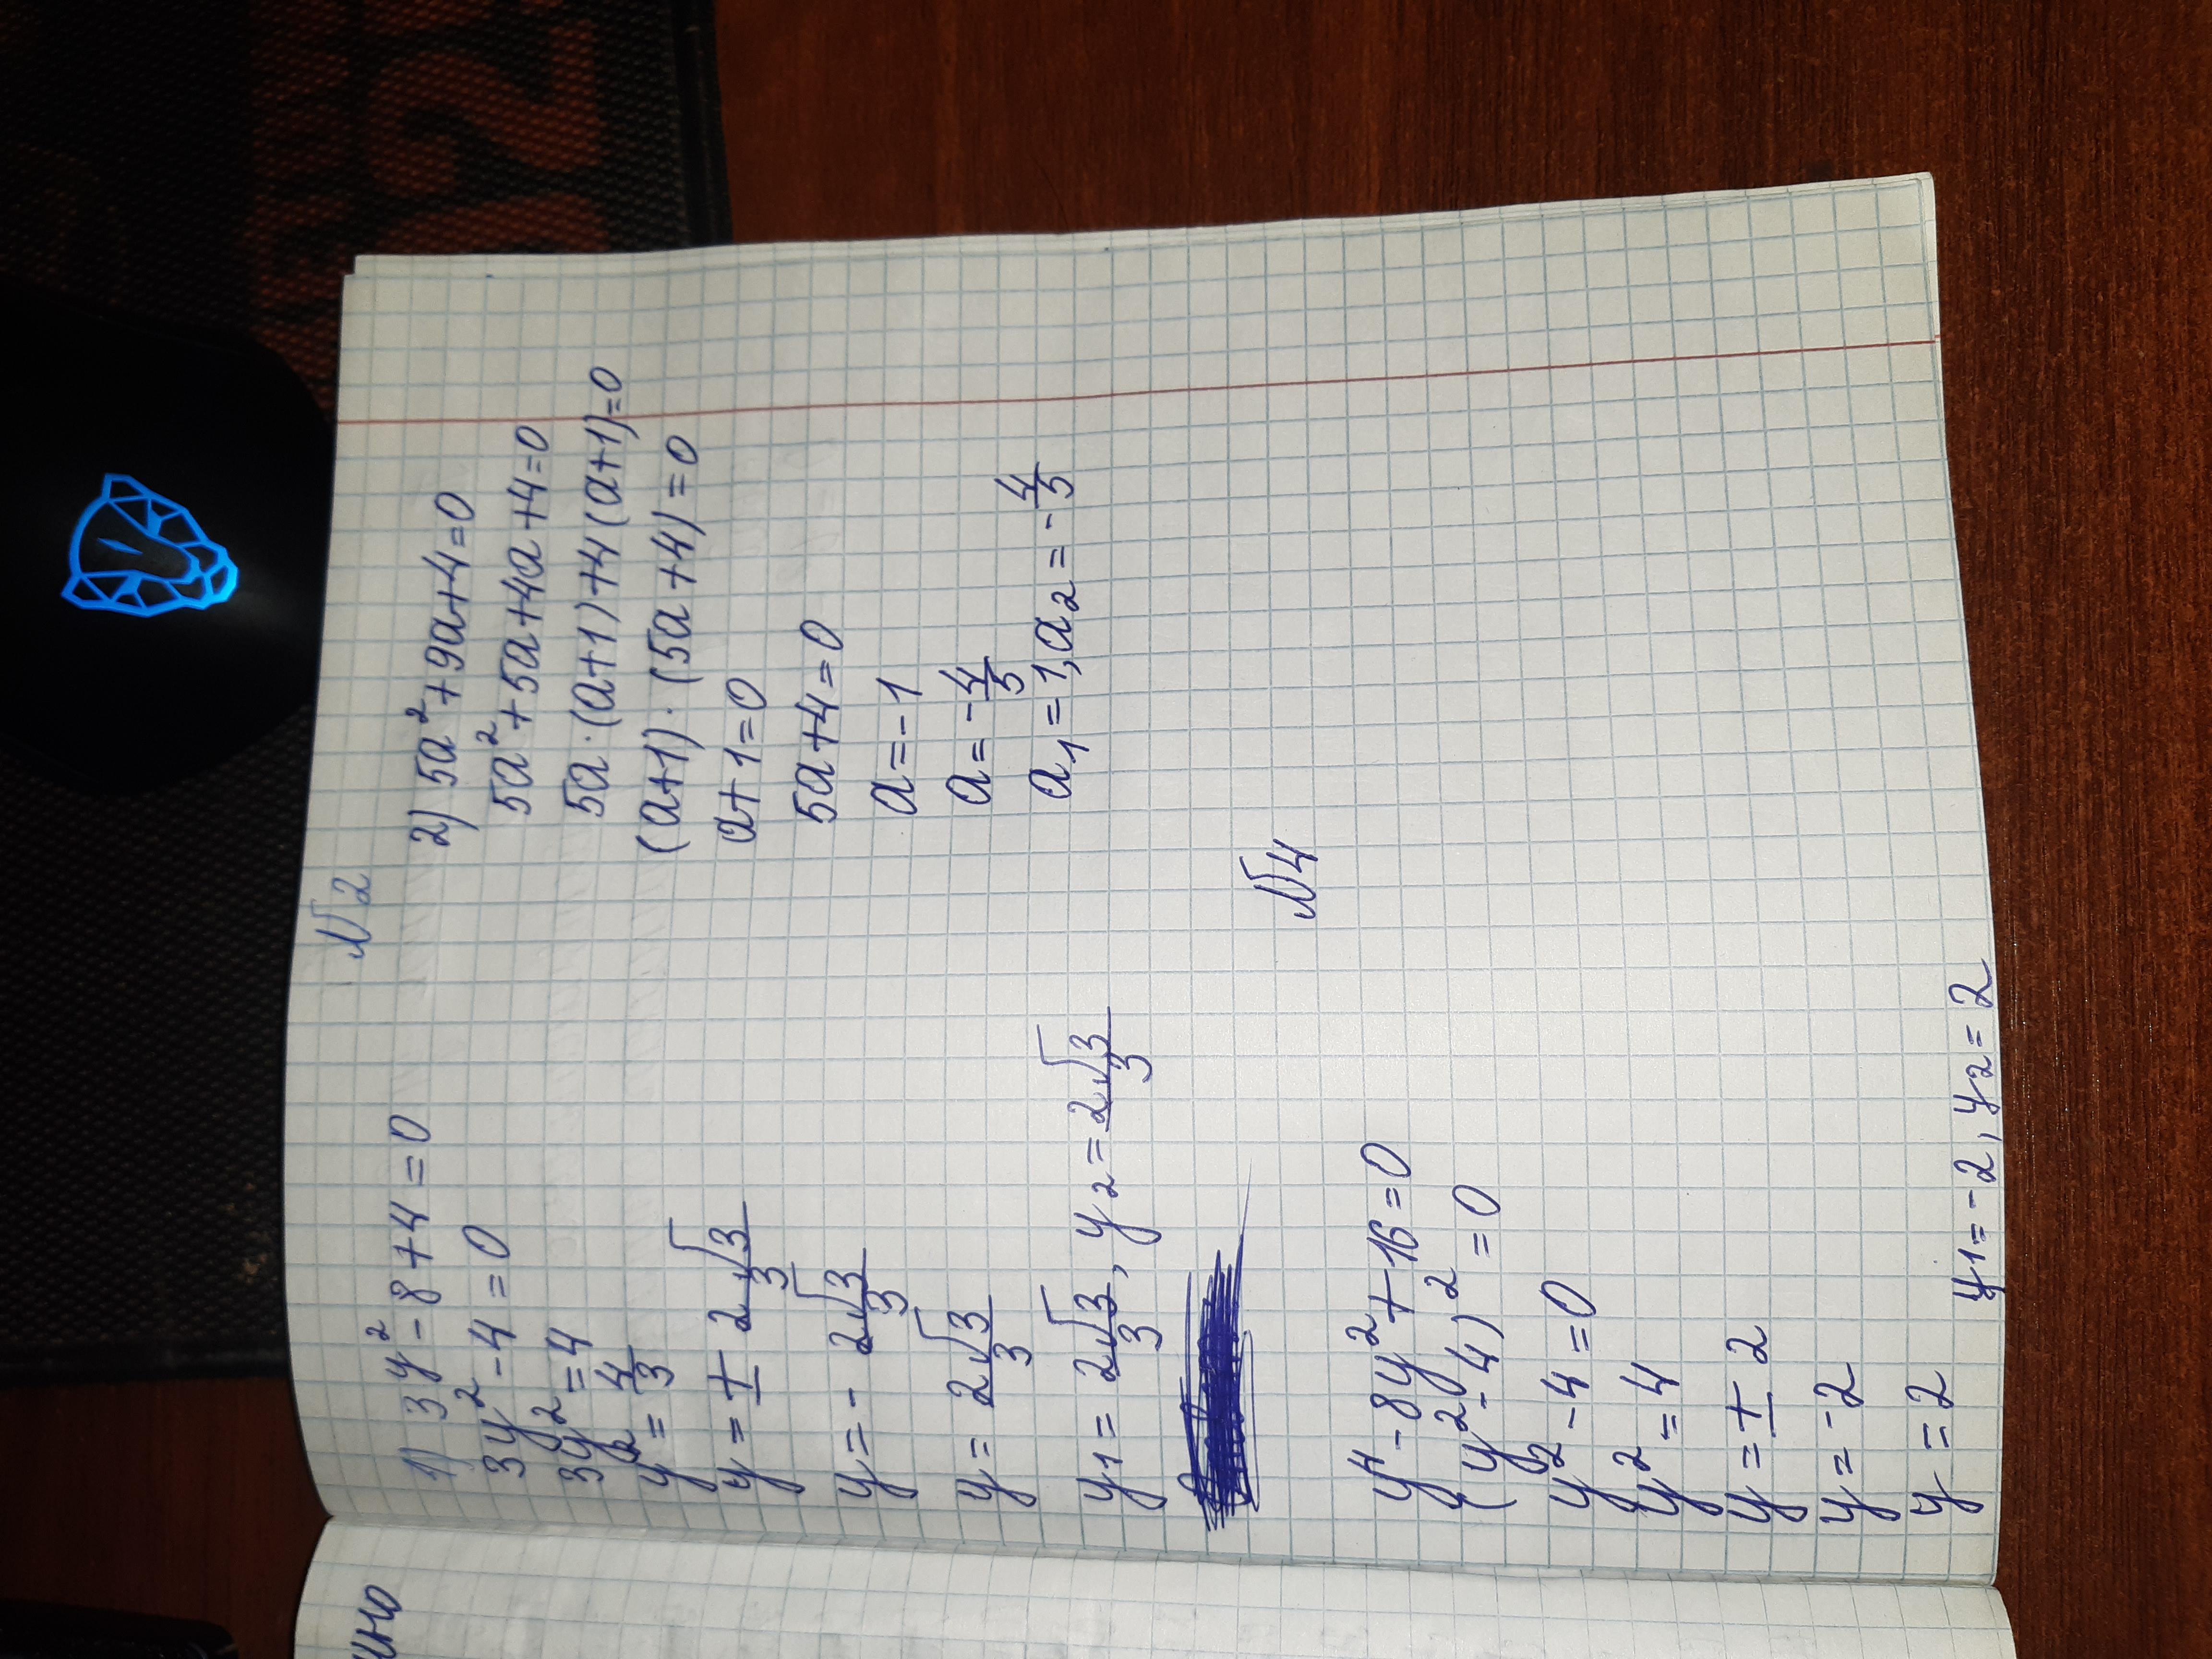 №2
1) 3y² - 8 + 4 = 0
3y² - 4 = 0
3y² = 4
y² = 4/3
y = ± 2√3/3
y = - 2√3/3
y = 2√3/3
y₁ = 2√3/3, y₂ = 2√3/3
2) 5a² + 9a + 4 = 0
5a² + 5a + 4a + 4 = 0
5a · (a+1) + 4(a+1) = 0
(a+1) · (5a+4) = 0
a + 1 = 0
5a + 4 = 0
a = -1
a = - 4/5
a₁ = 1, a₂ = - 4/5
№4
y⁴ - 8y² + 16 = 0
(y² - 4)² = 0
y² - 4 = 0
y² = 4
y = ± 2
y = -2
y = 2
y₁ = -2, y₂ = 2